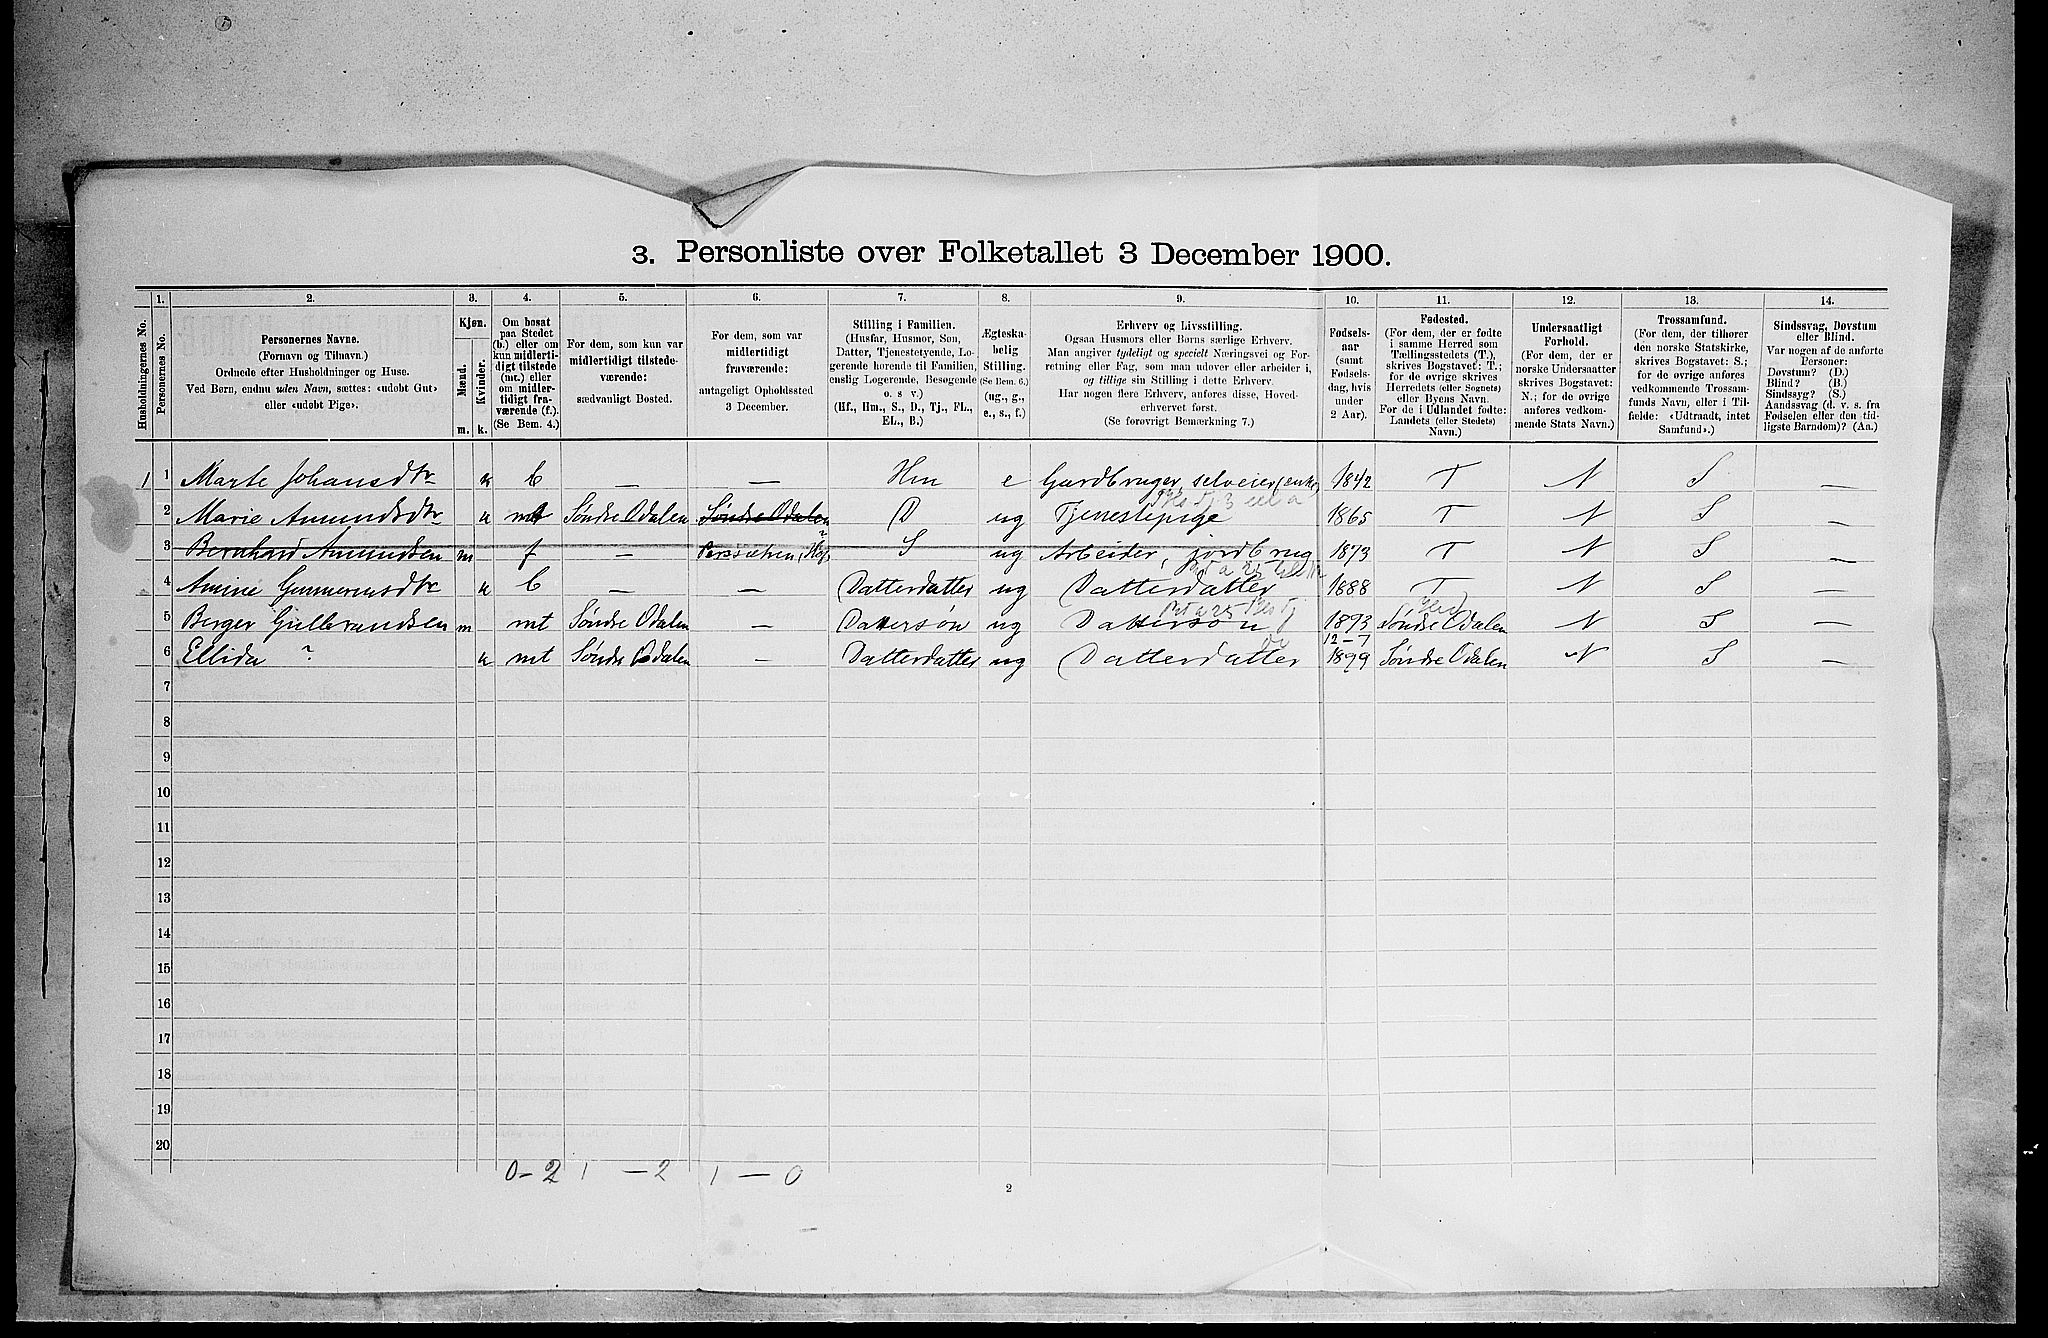 3. Personliste over Folketallet 3 December 1900.
Husholdningernes No.
1. Personernes No.
2. Personernes Navne. (Fornavn og Tilnavn.) Ordnede efter Husholdninger og Huse. Ved Børn, endnu uden Navn, sættes: «udøbt Gut» eller «udøbt Pige».
3. Kjøn. Mænd. m. Kvinder. k.
4. Om bosat paa Stedet (b.) eller om kun midlertidigt tilstede (mt.) eller om midlertidigt fraværende (f.). (Se Bem. 4.)
5. For dem, som kun var midlertidigt tilstedeværende: sædvanligt Bosted.
6. For dem, som var midlertidigt fraværende: antageligt Opholdssted 3 December.
7. Stilling i Familien. (Husfar, Husmor, Søn, Datter, Tjenestetyende, Logerende hørende til Familien, enslig Logerende, Besøgende o. s v.) (Hf., Hm., S., D., Tj., FL., EL., B.)
8. Ægteskabelig Stilling. (Se Bem. 6.) (ug., g., e., s., f.)
9. Erhverv og Livsstilling. Ogsaa Husmors eller Børns særlige Erhverv. Man angiver tydeligt og specielt Næringsvei og Forretning eller Fag, som man udover eller arbeider i, og tillige sin Stilling i dette Erhverv. Har nogen flere Erhverv, anføres disse, Hovederhvervet først. (Se forøvrigt Bemærkning 7.)
10. Fødselsaar (samt Fødselsdag, hvis under 2 Aar).
11. Fødested. (For dem, der er fødte i samme Herred som Tællingsstedets (T.), skrives Bogstavet: T.; for de øvrige skrives Herredets (eller Sognets) eller Byens Navn. For de i Udlandet fødte: Landets (eller Stedets) Navn.)
12. Undersaatligt Forhold. (For dem, der er norske Undersaatter skrives Bogstavet: N.; for de øvrige anføres vedkommende Stats Navn.)
13. Trossamfund. (For dem, der tilhører den norske Statskirke, skrives Bogstavet: S.; for de øvrige anføres vedkommende Trossamfunds Navn, eller i Tilfælde: «Udtraadt, intet Samfund».)
14. Sindssvag, Døvstum eller Blind. Var nogen af de anførte Personer: Døvstum? (D.) Blind? (B.) Sindssyg? (S.) Aandssvag (d. v. s. fra Fødselen eller den tidligste Barndom)? (Aa.)
1 1 Marte Johansdtr k b — — Hm e Gardbruger, selveier, enke 1842 T N S —
2 Marie Amundsdtr k mt Søndre Odalen Søndre Odalen D ug Tjenestepige 1865 T N S —
3 Bernhard Amundsen m f — S ug Arbeider, jordbrug 1873 T N S —
4 Amine Gunnerusdtr k b — — Datterdatter ug Datterdatter 1888 T N S —
5 Berger Gulbrandsen m mt Søndre Odalen — Dattersøn ug Dattersøn 1893 Søndre Odalen N S —
6 Ellida ? k mt Søndre Odalen — Datterdatter ug Datterdatter 12-7 1899 Søndre Odalen N S —
7
8
9
10
11
12
13
14
15
16
17
18
19
20
0-2 1-2 1-0
2